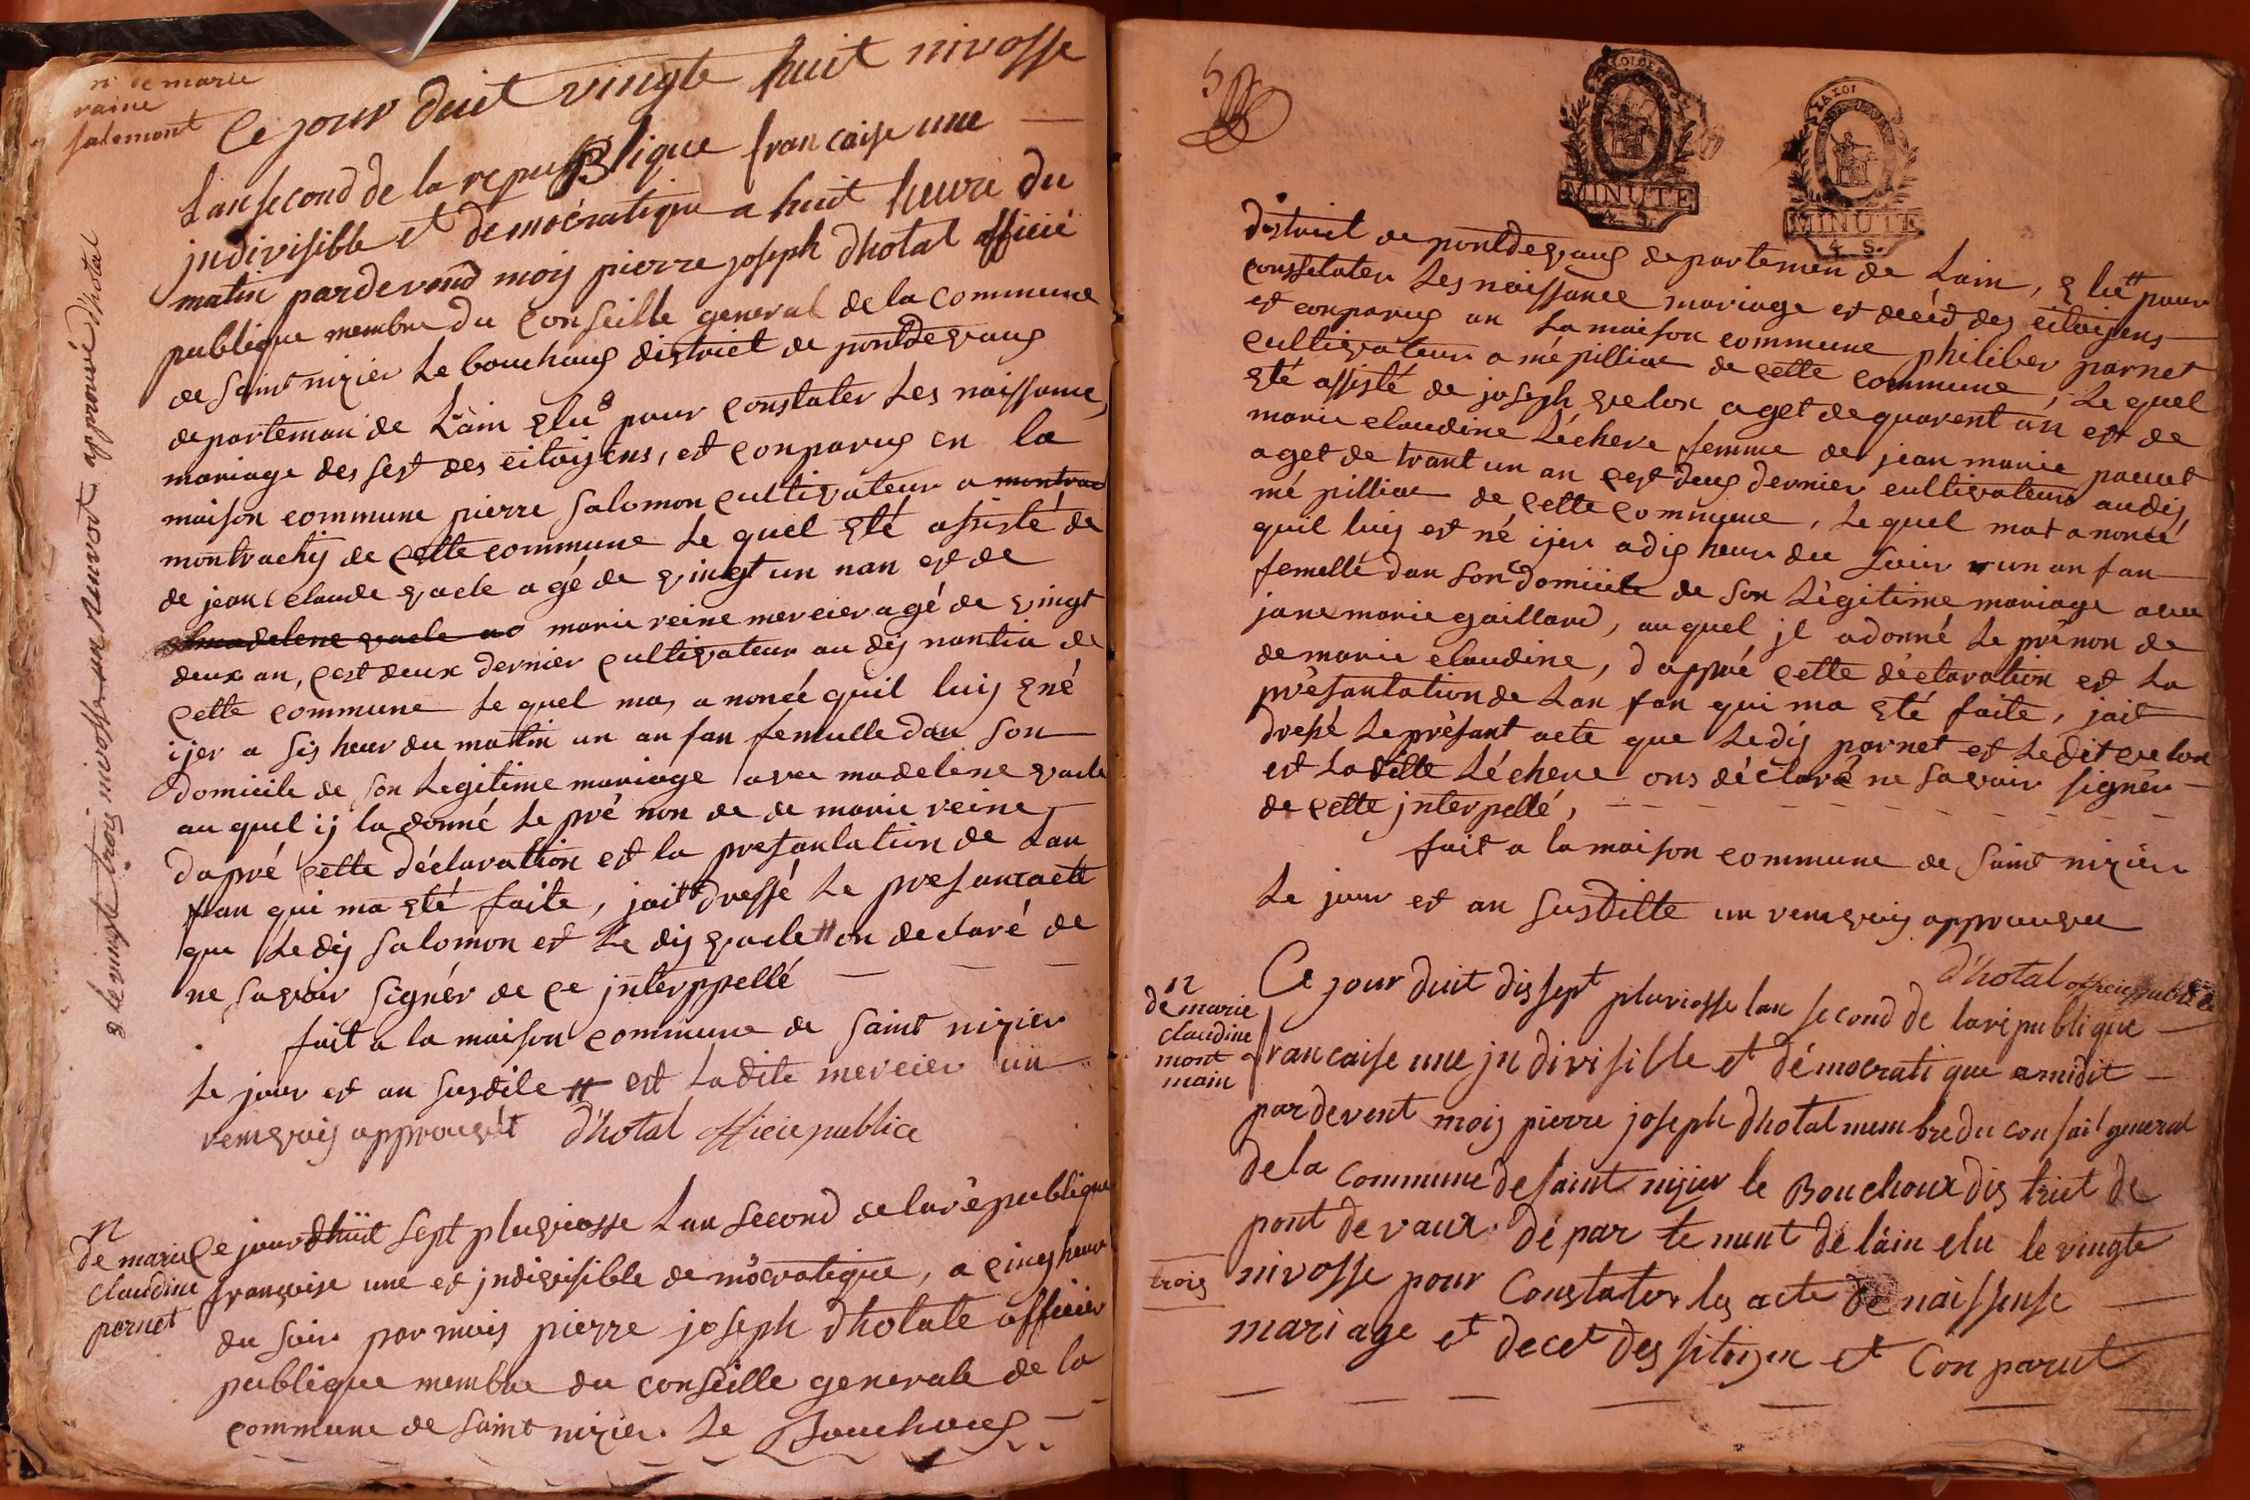 n de marie
raine
salomont
Ce jour duit vingte huit nivosse
Lan second de la republique francaise une
jndivisible et democratique a huit heure du
matin pardevend moij pierre joseph dhotal officié
publique membre du conseille general de la commune
de saint nizier Le bouchoux district de pontdevaux
departeman de L'ain élu 8 pour constater Les naissance
mariage des sest des citoijens, et conparus en la
maison commune pierre salomon cultivateur a montrac
montrachij de cette commune Le quel été assisté de
de jean claude vacle agé de vingt un nan est de
madelene vacle marie reine mercier agé de vingt
deux an, cest deux dernier cultivateur au dij nantia de
cette commune Le quel mas a noncé quil luij éné
ijer a sis heur du matin un an fan femelle dan son
domicile de son Legitime mariage avec madeleine vacle
au quel ij la donné Le pré non de de marie reine
dapré cette déclaration est la presantation de Lan
fan qui ma été faite, jait dressé Le presantacte
que Ledij salomon est Le dij vacle # on declaré de
ne savoir signér de ce jnterppellé
fait a la maison commune de saint nizier
Le jour et an susdite # est Ladite mercier un
renvois approuvét d'hotal officie publice
8 Le vingte trois nivosse un renvoit approuvé d'hotal
n
de marie
claudine
pernet
Ce jour dhuit sept pluviosse Lan second de la république
françoise une et jndivisible démocratique, a cinq heure
du soir par mois pierre joseph dhotale officier
publique membre du conseille generale de la
commune de saint nizier Le Bouchoux
district de pontdevaux departemen de Lain, élu # pour
constater Les naissance mariage et décéd des citoijens
est conparus an La maison commune philiber parnet
cultivateur a mépilliat de cette commune, Le quel
été assisté de joseph velon aget de quarent un est de
marie claudine Léchere femme de jean marie pauut
aget de trant un an cest deux dernier cultivateur audij
mé pilliat de cette commune, Le quel mat anoncé
quil luij est né ijer adix heure du soir un an fan
femelle dan son domicile de son Légitime mariage avec
jane marie gaillard, auquel jl adonné Le prénon de
de marie claudine, dappré cette déclaration est La
présantation de Lan fan qui ma été faite, jait
dressé Le présant acte que Ledij parnet est Ledit velon
est Ladille Léchere ons déclaré ne savoir signér
de cette jnterpellé,
fait a la maison commune de saint nizier
Le jour et an susditte un renvois approuvee
d'hotal officie publice
n
de marie
claudine
mont
main
Ce jour duit dissept pluviosse lan second de la republique
francaise une jndivisible et démocratique a midit
pardevent moij pierre joseph dhotal membre du consail general
de la commune de saint nizier le Bouchoux district de
pont de vaux departemunt de l'ain elu le vingte
trois
nivosse pour Constater les acte de naissense
mariage et decet des sitoijen et Conparut
MINUTE
4. S.
MINUTE
4. S.